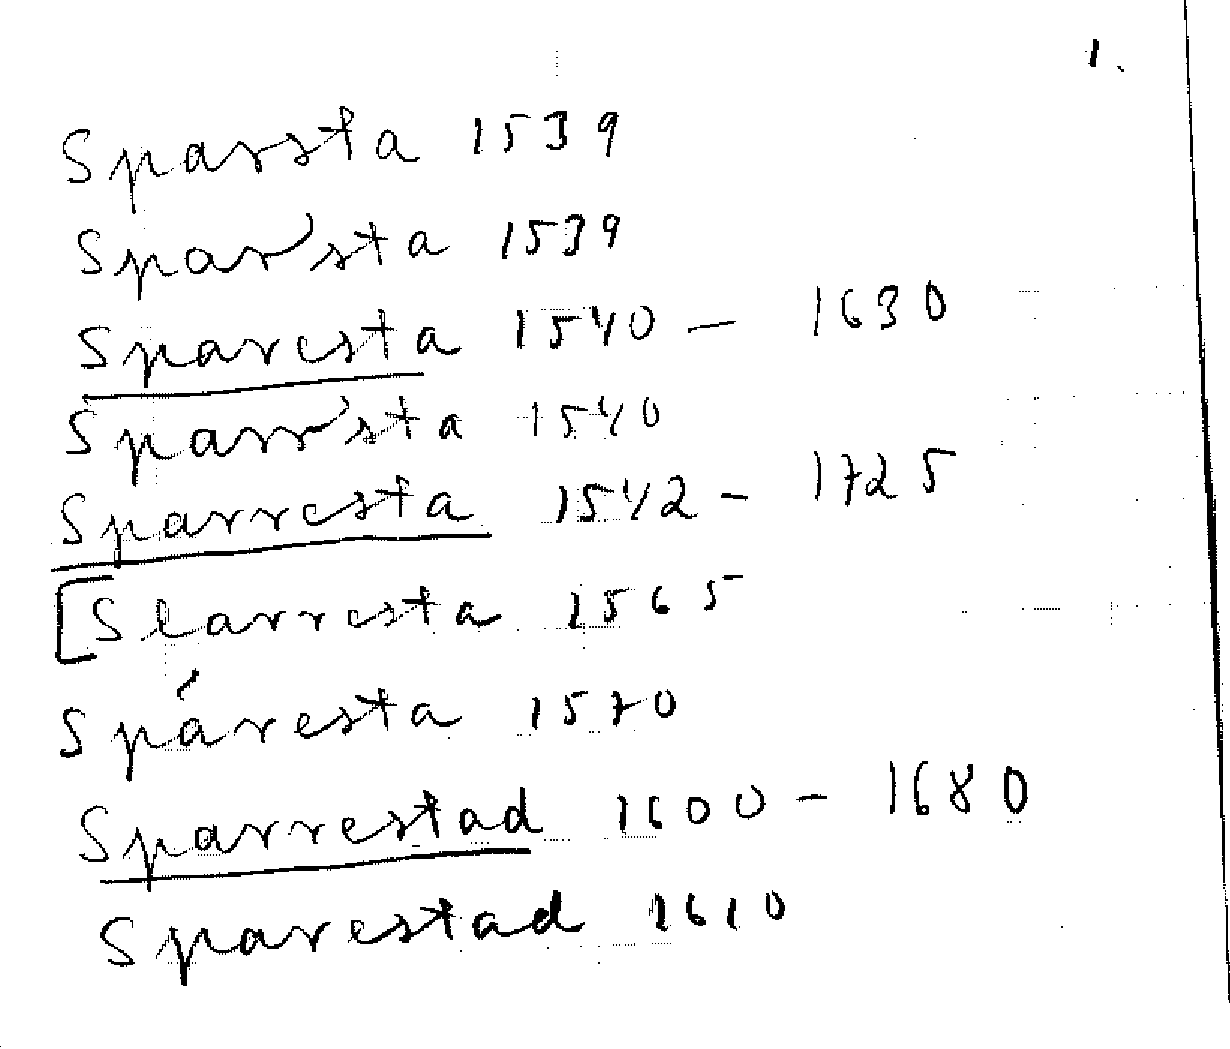 1.
Sparsta 1539
Spar'sta 1539
Sparesta 1540 – 1630
Sparr'sta 1540
Sparresta 1542 – 1725
[Slarresta 1565
Spáresta 1570
Sparrestad 1600 – 1680
Sparestad 1610